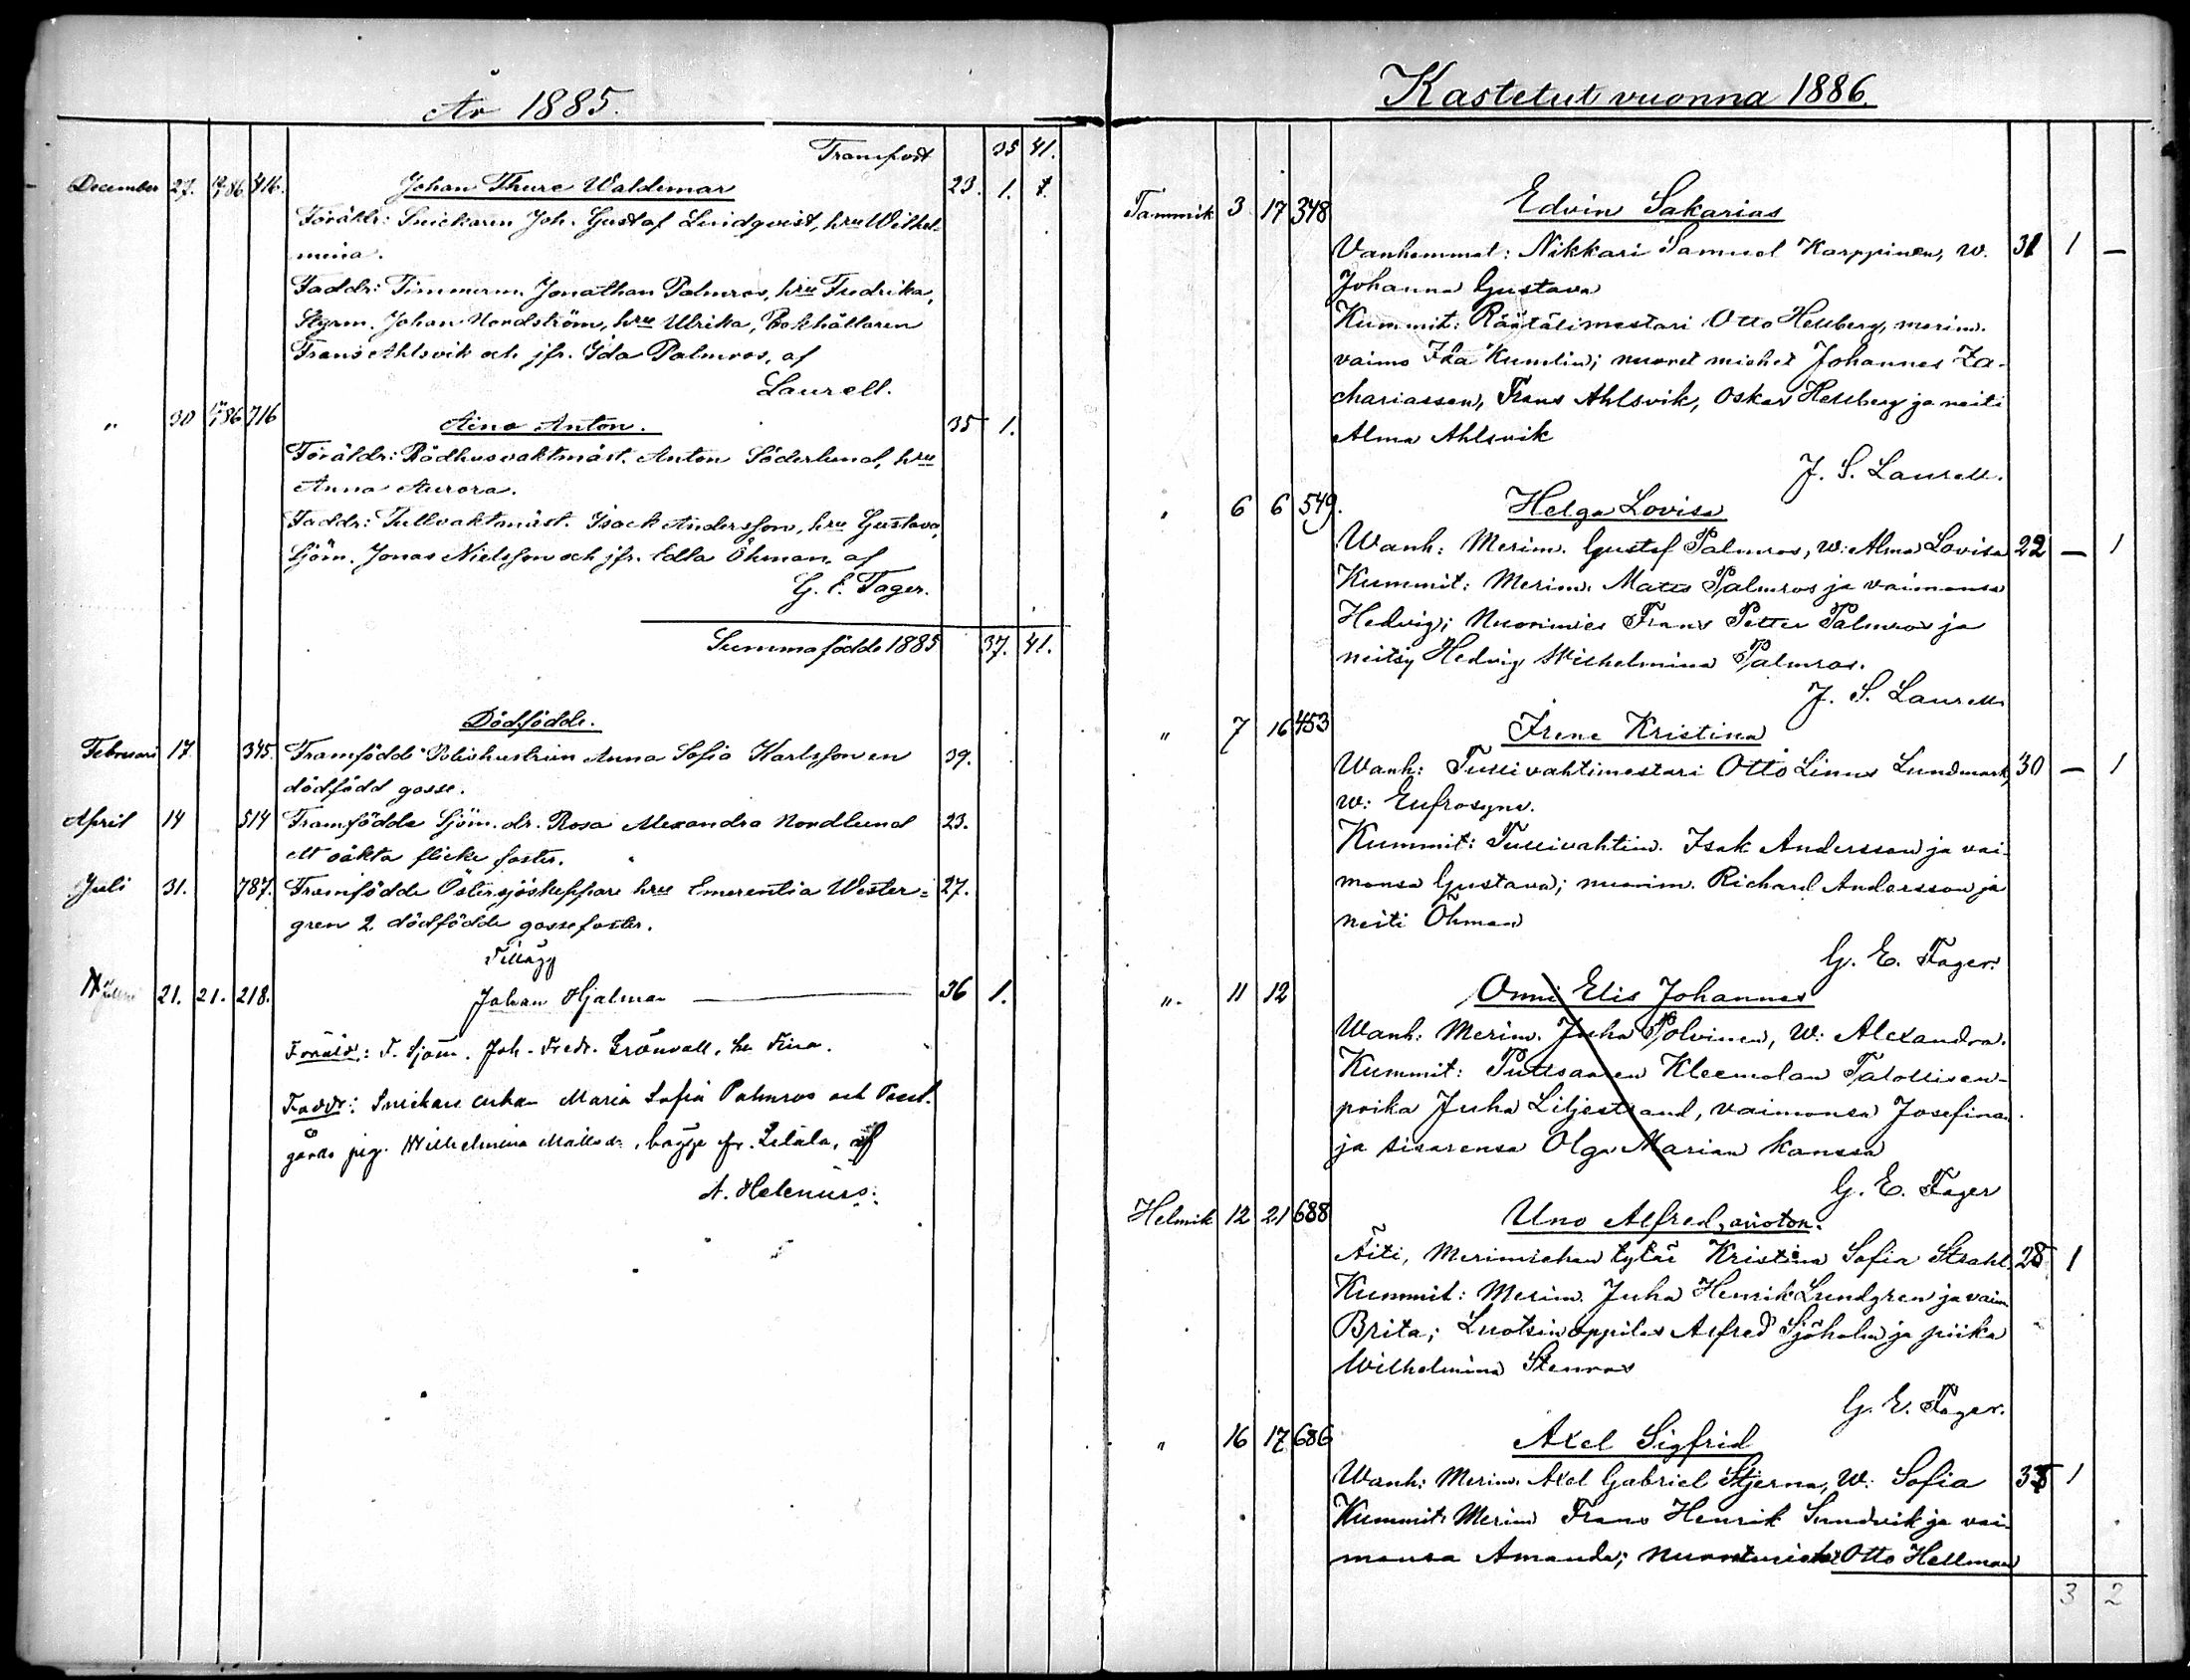 År 1885.
Transport 35 41.
December 27. 416. Johan Thure Waldemar 23. 1.
Föräldr: Snickaren Joh. Gustaf Lindqvist, hru Wilhel-
mina.
Faddr: Timmerm. Jonathan Palmros, hru Fredrika,
Styrm. Johan Nordström, hru Ulrika, Bokhållaren
Frans Ahlsvik och jfr. Ida Palmros, af
Laurell.
" 30 716 Aino Anton. 35 1.
Föräldr: Rådhusvaktmäst. Anton Söderlund, hru
Anna Aurora.
Faddr: Tullvaktmäst. Isack Andersson, hru Gustava,
Sjöm. Jonas Nielsson och jfr. Edla Öhman, af
G. E. Fager.
Summa födde 1885 37. 41.
Dödfödde.
Februari 17. 345. Framfödde Anna Sofia Karlsson en 39.
dödfödd gosse.
April 14 514 Framfödde Sjöm. dr. Rosa Alexandra Nordlund 23.
ett oäkta flicke foster.
Juli 31. 787. Framfödde Östersjöskeppare hru Emerentia Wester= 27.
gren 2 dödfödde gossefoster.
Tillägg
21. 21. 218. Johan Hjalmar 36 1.
Föräld: F. Sjöm. Joh. Fredr. Grönvall, hu Fina.
Faddr: Snickare enkan Maria Sofia Palmros och
gårds pig. Wilhelmina, bägge fr. af
A. Helenius.
Kastetut vuonna 1886.
Tammik 3 17 348 Edvin Sakarias
Vanhemmat: Nikkari Samuel Karppinen, W. 31 1 —
Johanna Gustava
Kummit: Räätälimestari Otto Hellberg, merim.
vaimo Ida Kumlin; nuoret miehet Johannes Za-
chariassen, Frans Ahlsvik, Oskar Hellberg ja neiti
Alma Ahlsvik
J. S. Laurell.
" 6 6 549. Helga Lovisa
Wanh: Merim. Gustaf Palmros, W: Alma Lovisa 22 — 1
Kummit: Merim. Matts Palmros ja vaimonsa
Hedvig; Nuorimies Frans Petter Palmros ja
neitsy Hedvig Wilhelmina Palmros.
J. S. Laurell
" 7 16 453 Irene Kristina
Wanh: Tullivahtimestari Otto Linus Lundmark, 30 — 1
w: Eufrosyne.
Kummit: Tullivahtim. Isak Andersson ja vai-
monsa Gustava; nuorim. Richard Andersson ja
neiti Öhman
G. E. Fager.
" 11 12 Onni Elis Johannes
Wanh: Merim. Juha Polvinen, W: Alexandra.
Kummit: Puttsaaren Kleemolan Talollisen-
poika Juha Liljestrand, vaimonsa Josefinan
ja sisarensa Olga Marian kanssa
G. E. Fager
Helmik 12 21 688 Uno Alfred, avioton.
Äiti, Merimiehen tytär Kristina Sofia Strahl 28 1
Kummit: Merim. Juha Henrik Lundgren ja vaim.
Brita; Luotsinoppilas Alfred Sjöholm ja piika
Wilhelmina Stenros
G. E. Fager.
" 16 17 686 Axel Sigfrid
Wanh: Merim. Axel Gabriel Stjerna, W: Sofia 1
Kummit: Merim Frans Henrik Sundvik ja vai-
monsa Amanda; Otto Hellman
3 2